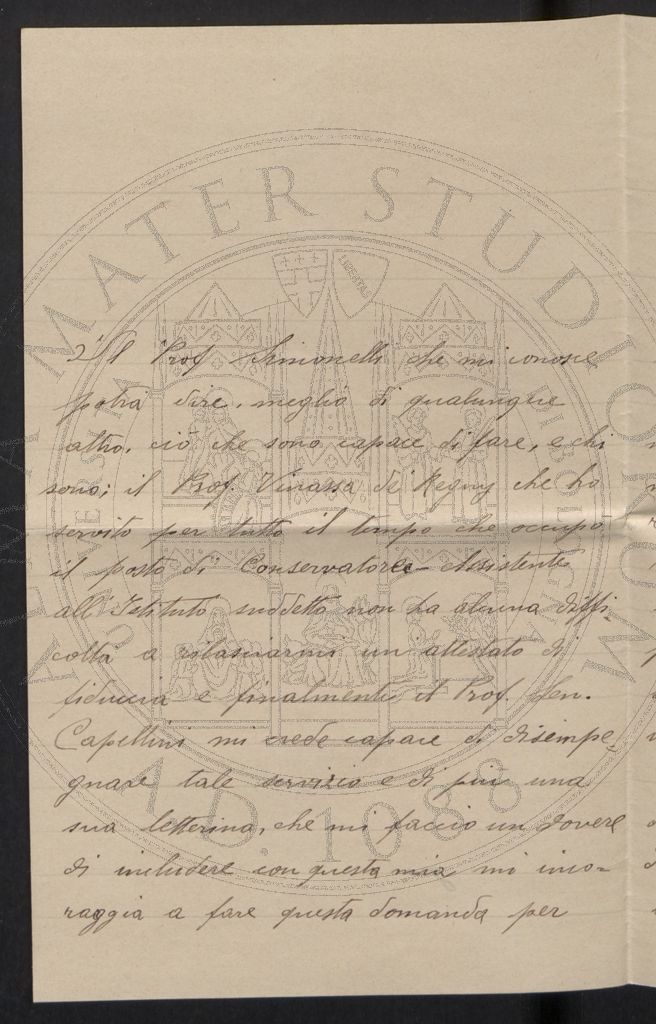 Il Prof Simonelli che mi conosce
potrà dire, meglio di qualunque
altro, ciò che sono capace di fare, e chi
sono; il Prof. Vinassa de Regny che ho
servito per tutto il tempo che occupò
il posto di Conservatore-Assistente
all'Istituto suddetto non ha alcuna diffi-
coltà a rilasciarmi un attestato di
fiducia e finalmente il Prof. Sen.
Capellini mi crede capace di disimpe-
gnare tale servizio e di più una
sua letterina, che mi faccio un dovere
di includere con questa mia mi inco-
raggia a fare questa domanda per
ALMA MATER STUDIORUM
A.D. 1088
LIBERTAS